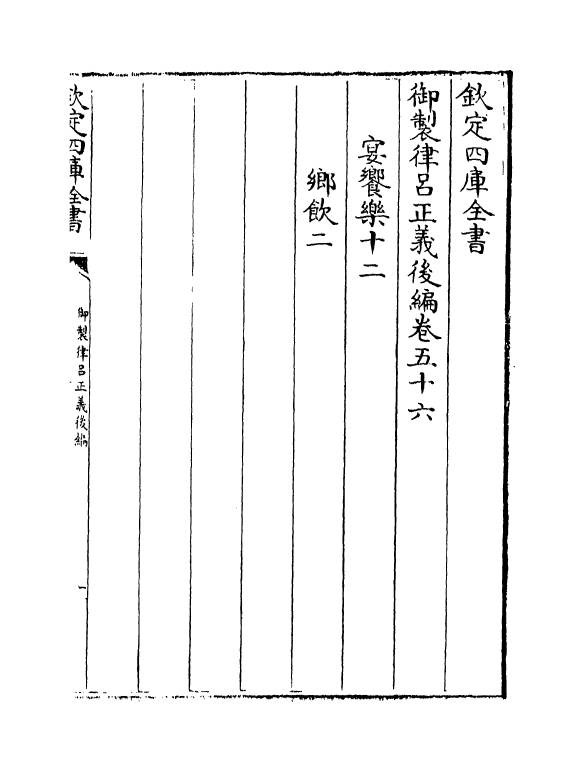 欽定四庫全書
御製律呂正義後編卷五十六
宴饗樂十二
鄉飲二
欽定四庫全書
御製律呂正義後編
一